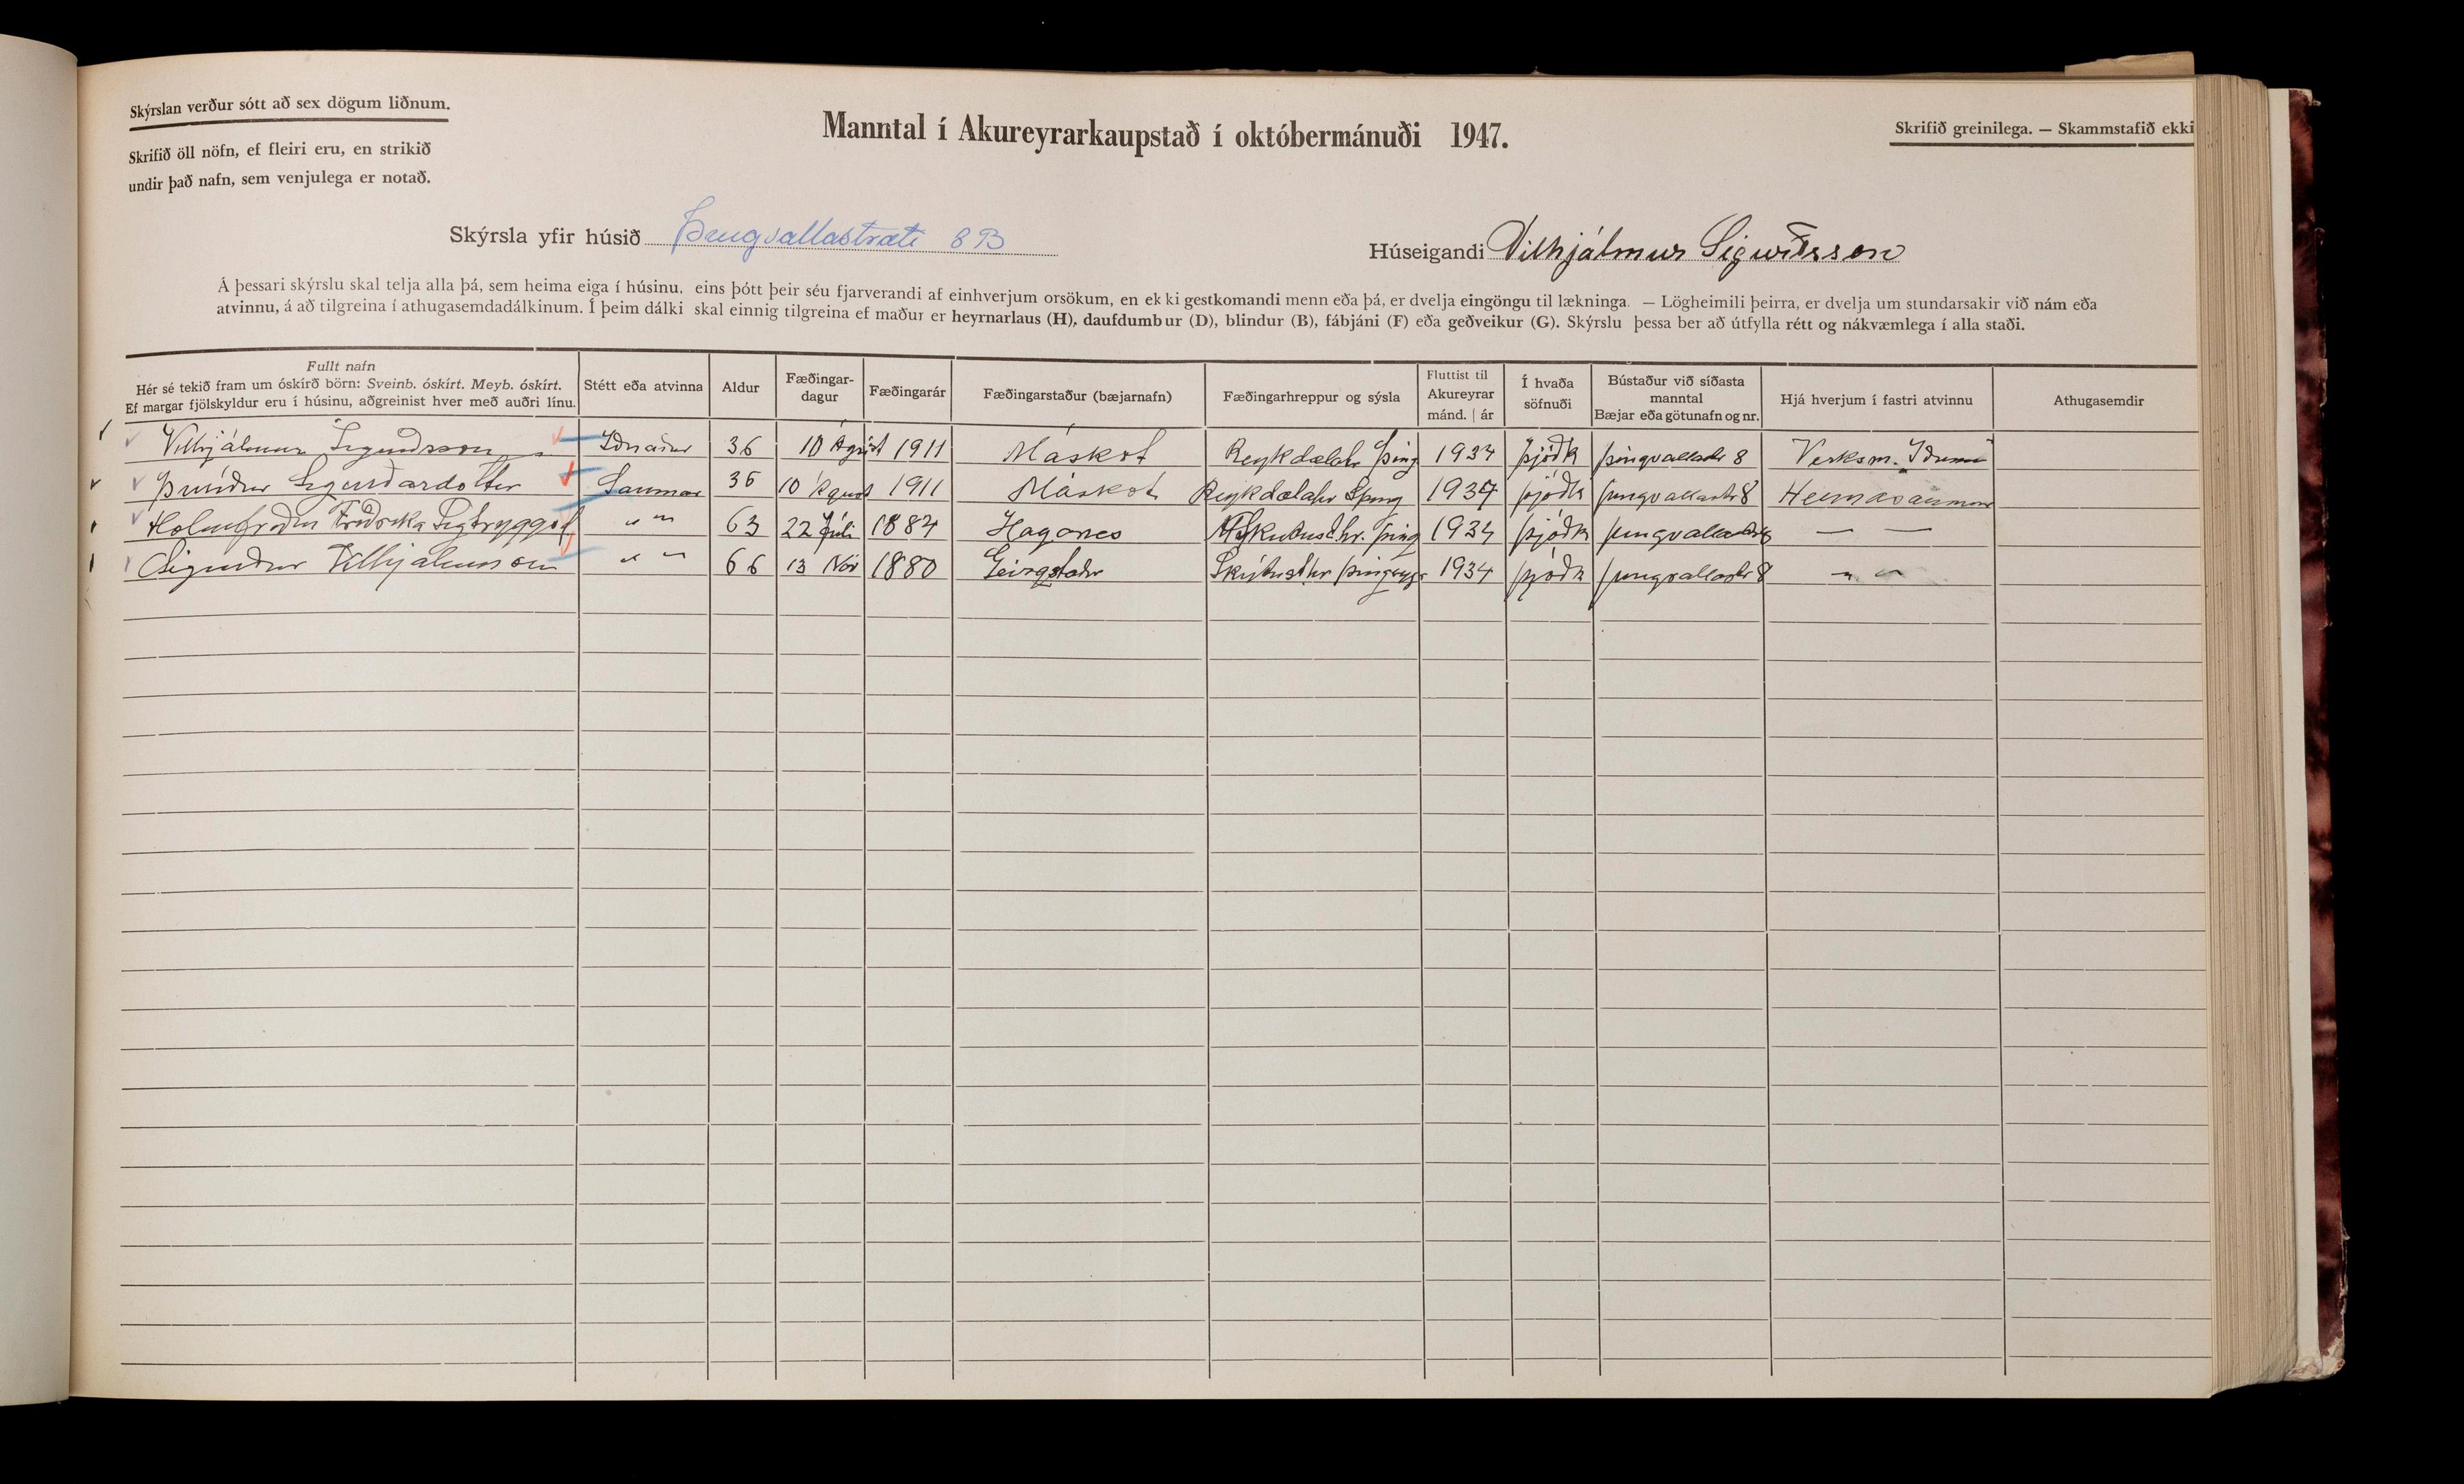 Skýrslan verður sótt að sex dögum liðnum.
Skrifið öll nöfn, ef fleiri eru, en strikið
undir það nafn, sem venjulega er notað.
Manntal í Akureyrarkaupstað í októbermánuði 1947.
Skrifið greinilega. — Skammstafið ekki
Skýrsla yfir húsið Þingvallastræti 8 B
Húseigandi Vilhjálmur Sigurðsson
Á þessari skýrslu skal telja alla þá, sem heima eiga í húsinu, eins þótt þeir séu fjarverandi af einhverjum orsökum, en ekki gestkomandi menn eða þá, er dvelja eingöngu til lækninga. — Lögheimili þeirra, er dvelja um stundarsakir við nám eða
atvinnu, á að tilgreina í athugasemdadálkinum. Í þeim dálki skal einnig tilgreina ef maður er heyrnarlaus (H), daufdumbur (D), blindur (B), fábjáni (F) eða geðveikur (G). Skýrslu þessa ber að útfylla rétt og nákvæmlega í alla staði.
Fullt nafn
Hér sé tekið fram um óskírð börn: Sveinb. óskírt. Meyb. óskírt.
Ef margar fjölskyldur eru í húsinu, aðgreinist hver með auðri línu.
Stétt eða atvinna
Aldur
Fæðingar-
dagur
Fæðingarár
Fæðingarstaður (bæjarnafn)
Fæðingarhreppur og sýsla
Fluttist til
Akureyrar
mánd. | ár
Í hvaða
söfnuði
Bústaður við síðasta
manntal
Bæjar eða götunafn og nr.
Hjá hverjum í fastri atvinnu
Athugasemdir
Vilhjálmur Sigurðsson Iðnaður 36 10 Ágúst 1911 Máskot Reykdælahr Þing 1934 þjóðk þingvallastr 8 Verksm. Iðunn
Þuríður Sigurðardóttir Saumar 36 10 Ágúst 1911 Máskot Reykdælahr Þing 1934 þjóðk þingvallastr 8 Heimasaumar
Holmfriður Friðrika Sigtryggsd " " 63 22 Júli 1884 Haganes Skutust.hr. Þing 1934 þjóðk þingvallastr 8 — —
Sigurður Vilhjálmsson " " 66 13 Nóv 1880 Geirastaðir Skútust.hr þingeyjs 1934 þjóðk þingvallastr 8 " "